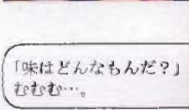 「味はどんなもんだ？」
むむむ…。